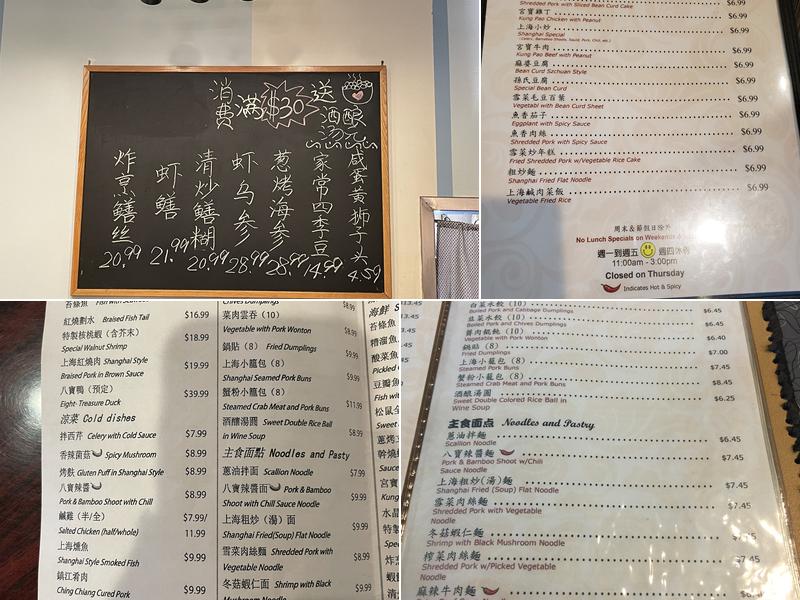 消费满$30送
酒酿汤元
咸蛋黄狮子头 4.59
家常四季豆 14.99
葱烤海参 28.99
虾乌参 28.99
清炒鳝糊 20.99
虾鳝 21.99
炸烹鳝丝 20.99
Shredded Pork with Sliced Bean Curd Cake
宮寶雞丁 $6.99
Kung Pao Chicken with Peanut
上海小炒 $6.99
Shanghai Special
宮寶牛肉 $6.99
Kung Pao Beef with Peanut
麻婆豆腐 $6.99
Bean Curd Szchuan Style
孫氏豆腐 $6.99
Special Bean Curd
雪菜毛豆百葉 $6.99
Vegetabl with Bean Curd Sheet
魚香茄子 $6.99
Eggplant with Spicy Sauce
魚香肉絲 $6.99
Shredded Pork with Spicy Sauce
雪菜炒年糕 $6.99
Fried Shredded Pork w/Vegetable Rice Cake
粗炒麵 $6.99
Shanghai Fried Flat Noodle
上海鹹肉菜飯 $6.99
Vegetable Fried Rice
周末&節假日除外
No Lunch Specials on Weekends &
週一到週五 週四休息
11:00am - 3:00pm
Closed on Thursday
Indicates Hot & Spicy
苔條魚 Fish with Seaweed
紅燒劃水 Braised Fish Tail $16.99
特製核桃蝦（含芥末） $18.99
Special Walnut Shrimp
上海紅燒肉 Shanghai Style $19.99
Braised Pork in Brown Sauce
八寶鴨（預定） $39.99
Eight- Treasure Duck
涼菜 Cold dishes
拌西芹 Celery with Cold Sauce $7.99
香辣菌菇 Spicy Mushroom $8.99
烤麩 Gluten Puff in Shanghai Style $8.99
八寶辣醬 $8.99
Pork & Bamboo Shoot with Chill
鹹雞（半/全） $7.99/
Salted Chicken (half/whole) 11.99
上海燻魚 $9.99
Shanghai Style Smoked Fish
鎮江肴肉 $9.99
Ching Chiang Cured Pork
Chives Dumplings $8.99
菜肉雲吞（10） $8.99
Vegetable with Pork Wonton
鍋貼（8） Fried Dumplings $9.99
上海小籠包（8） $9.99
Shanghai Seamed Pork Buns
蟹粉小籠包（8） $11.99
Steamed Crab Meat and Pork Buns
酒醩湯圓 Sweet Double Rice Ball $8.99
in Wine Soup
主食面點 Noodles and Pasty
蔥油拌面 Scallion Noodle $7.99
八寶辣醬面 Pork & Bamboo $9.99
Shoot with Chill Sauce Noodle
上海粗炒（湯）面 $9.99
Shanghai Fried(Soup) Flat Noodle
雪菜肉絲麵 Shredded Pork with $8.99
Vegetable Noodle
冬菇蝦仁面 Shrimp with Black $9.99
Mushroom Noodle
海鮮
苔條魚
糟溜魚
酸菜魚
Pickled
豆瓣魚
Fish wit
松鼠
Sweet
蔥烤
幹燒
宮寶
Kung
水晶
13.45
白菜水餃（10） $6.45
Boiled Pork and Cabbage Dumplings
韭菜水餃（10） $6.45
Boiled Pork and Chives Dumplings
鮮肉餛飩（10） $6.40
Vegetable with Pork Wonton
鍋貼（8） $7.00
Fried Dumplings
上海小籠包（8） $7.45
Steamed Pork Buns
蟹粉小籠包（8） $8.45
Steamed Crab Meat and Pork Buns
酒釀湯圓 $6.25
Sweet Double Colored Rice Ball in
Wine Soup
主食面点 Noodles and Pastry
蔥油拌麵 $6.45
Scallion Noodle
八寶辣醬麵 $7.45
Pork & Bamboo Shoot w/Chili
Sauce Noodle
上海粗炒(湯)麵 $7.45
Shanghai Fried (Soup) Flat Noodle
雪菜肉絲麵 $7.45
Shredded Pork with Vegetable
Noodle
冬菇蝦仁麵 $7.45
Shrimp with Black Mushroom Noodle
榨菜肉絲麵
Shredded Pork w/Picked Vegetable
Noodle
麻辣牛肉麵